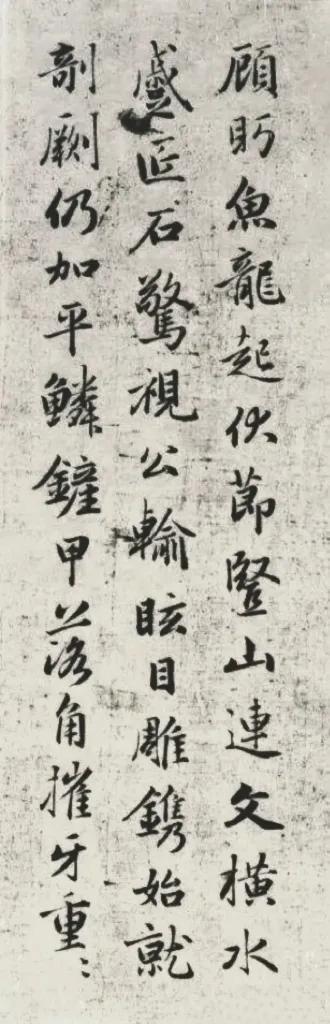 顧眄魚龍起伏節豎山連文橫水
蹙匠石驚視公輸眩目雕鐫始就
剞劂仍加平鱗鏟甲落角摧牙重〻